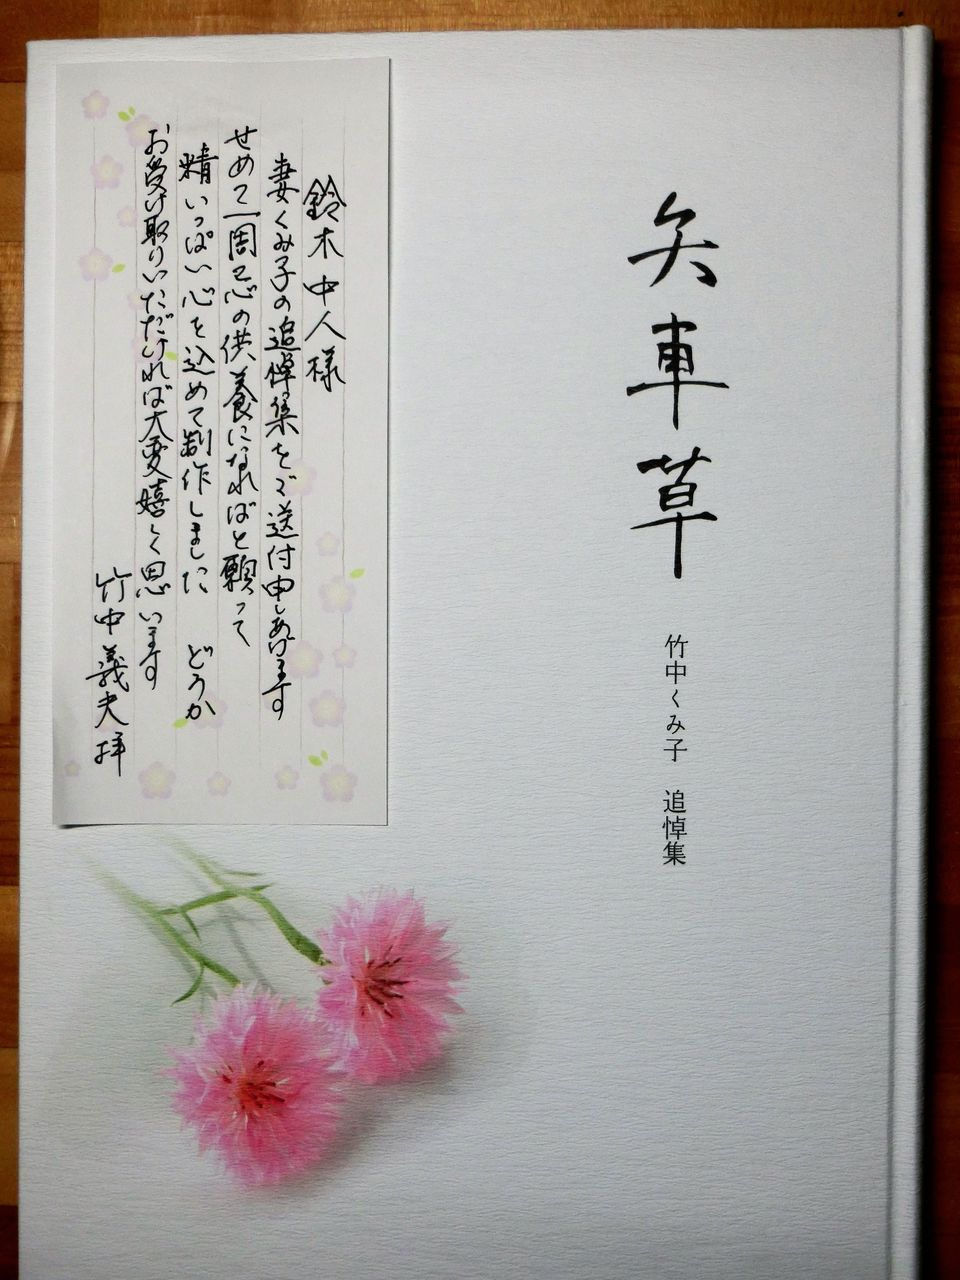 矢車草
竹中くみ子 追悼集
鈴木中人様
妻くみ子の追悼集をご送付申しあげます
せめて一周忌の供養になればと願って
精いっぱい心を込めて制作しました どうか
お受け取りいただければ大変嬉しく思います
竹中義夫拝